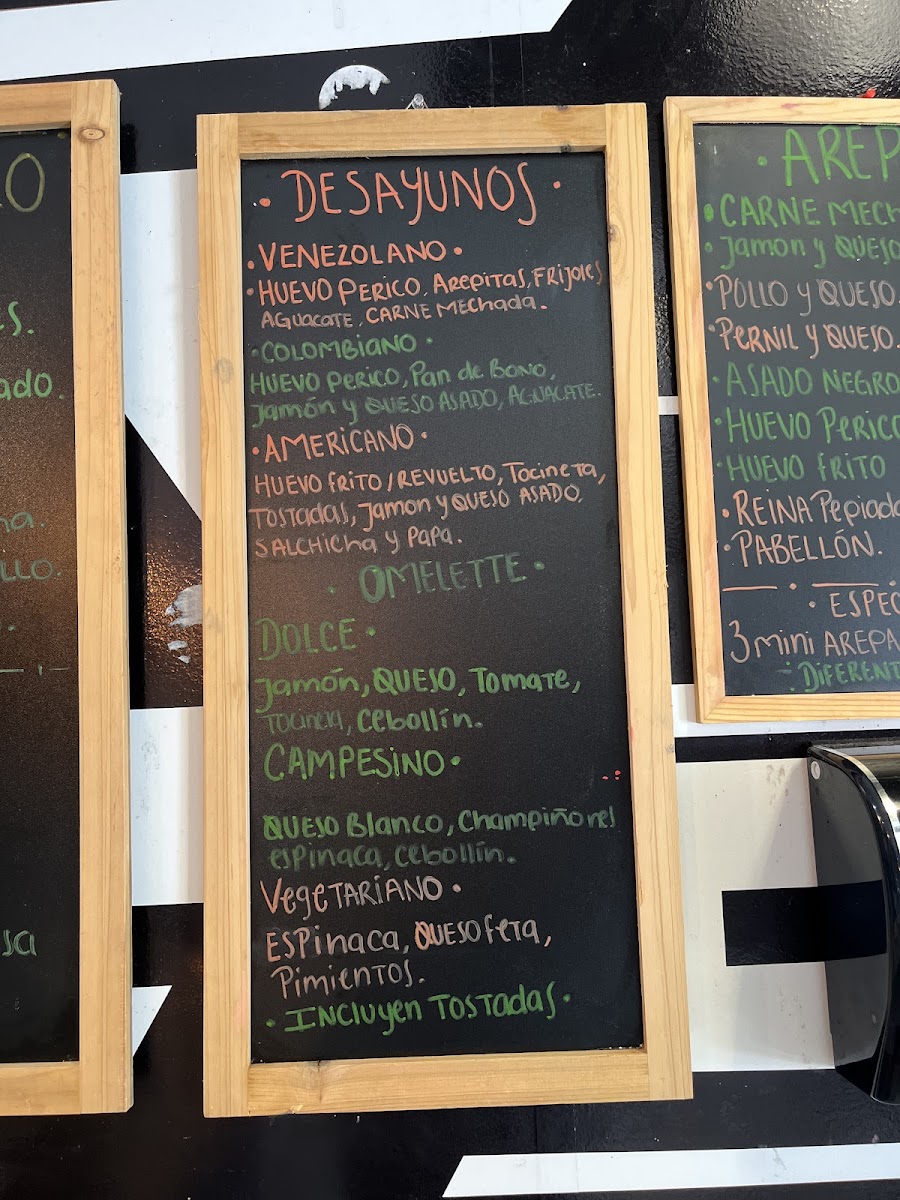 O
S.
ado.
na.
LLO.
sa
• DESAYUNOS •
• VENEZOLANO •
• HUEVO PERICO, Arepitas, FRIJOLES
AGUACATE, CARNE MECHADA.
• COLOMBIANO •
HUEVO PERICO, Pan de Bono,
Jamón y QUESO ASADO, AGUACATE.
• AMERICANO •
HUEVO FRITO / REVUELTO, Tocineta,
TOSTADAS, Jamon y QUESO ASADO,
SALCHICHA y PAPA.
• OMELETTE •
DOLCE •
Jamón, QUESO, Tomate,
Cebollín.
CAMPESINO •
QUESO Blanco, Champiñones
espinaca, cebollín.
VegeTARIANO •
ESPINACA, QUESO FETA,
PIMIENTOS.
• INCLUYEN TOSTADAS •
• AREP
• CARNE MECH
• Jamon y QUESO
• POLLO y QUESO.
• PERNIL y QUESO.
• ASADO NEGRO
• HUEVO PERICO
• HUEVO FRITO
• REINA Pepiada
• PABELLÓN.
• ESPEC
3 mini AREPA
• DIFERENT